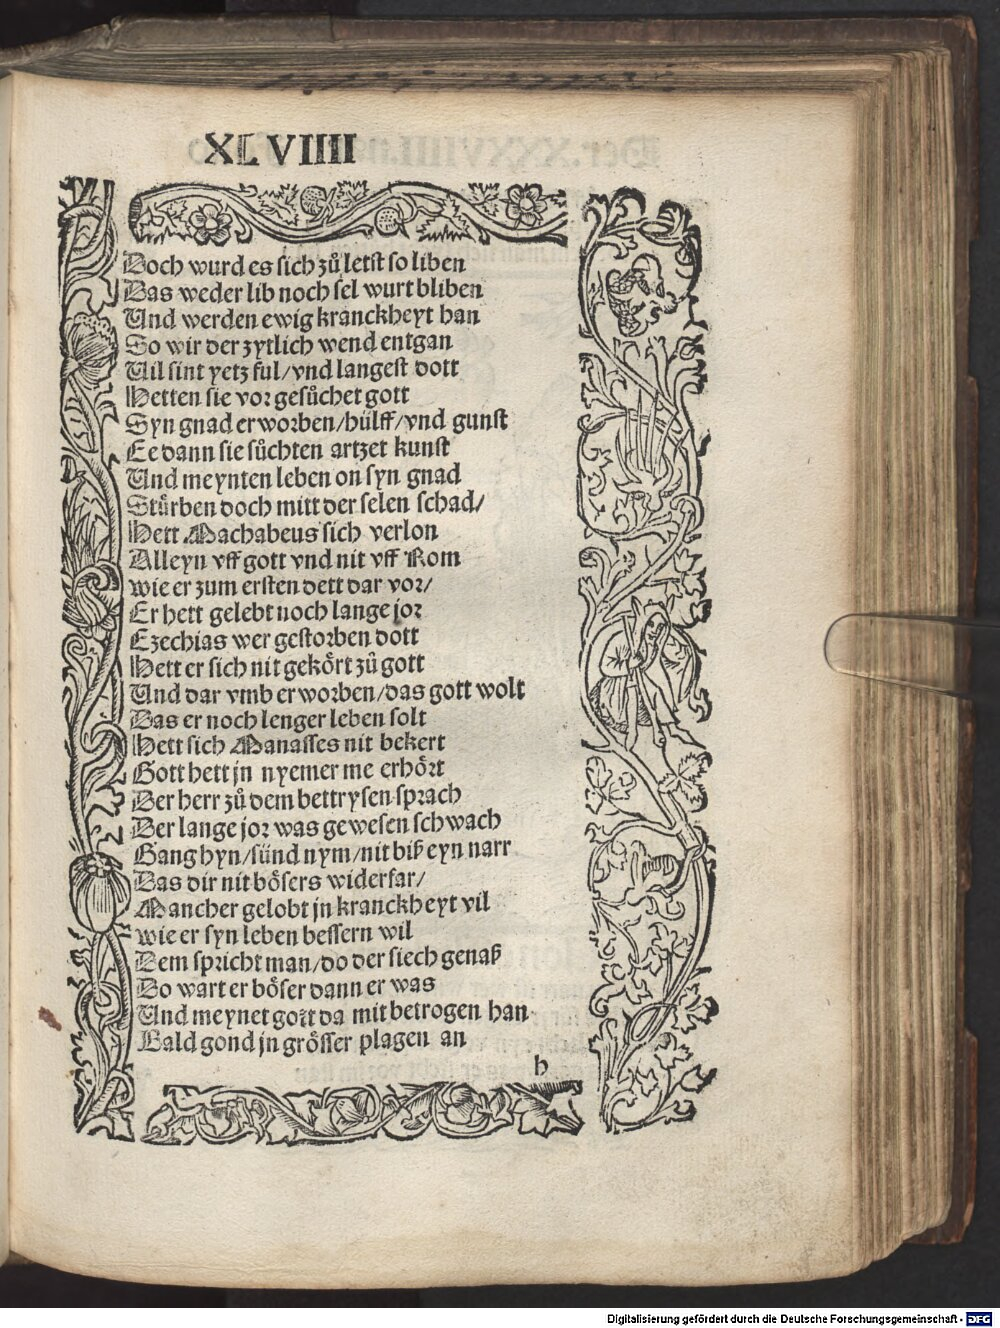 XLVIIII
Doch wurd es sich zuͦ letst so liben
Das weder lib noch sel wurt bliben
Und werden ewig kranckheyt han
So wir der zytlich wend entgan
Uil sint yetz ful/vnd langest dott
Hetten sie vor gesuͦchet gott
Syn gnad erworben/hülff/vnd gunst
Ee dann sie suͦchten artzet kunst
Und meynten leben on syn gnad
Stürben doch mitt der selen schad/
Hett Machabeus sich verlon
Alleyn vff gott vnd nit vff Rom
wie er zum ersten dett dar vor/
Er hett gelebt noch lange jor
Ezechias wer gestorben dott
Hett er sich nit gekört zuͦ gott
Und dar vmb erworben/das gott wolt
Das er noch lenger leben solt
Hett sich Manasses nit bekert
Gott hett jn nyemer me erhört
Der herr zuͦ dem bettrysen sprach
Der lange jor was gewesen schwach
Gang hyn/sünd nym/nit biß eyn narr
Das dir nit bösers widerfar/
Mancher gelobt jn kranckheyt vil
wie er syn leben bessern wil
Dem spricht man/do der siech genaß
Do wart er böser dann er was
Und meynet gott da mit betrogen han
Bald gond jn grösser plagen an
h
Digitalisierung gefördert durch die Deutsche Forschungsgemeinschaft - DFG